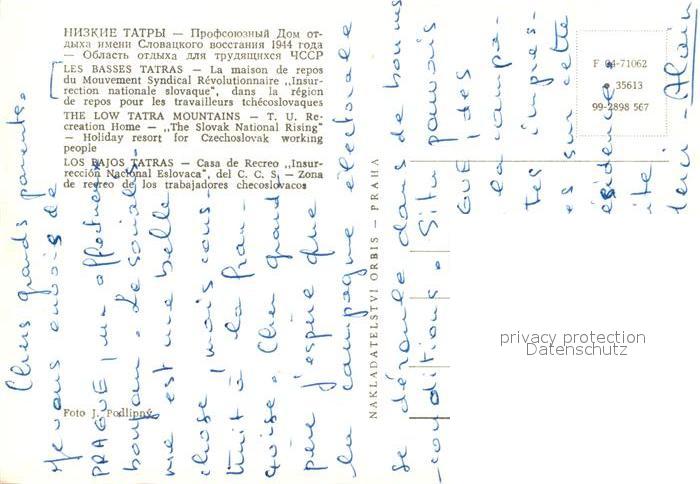 НИЗКИЕ ТАТРЫ — Профсоюзный Дом от-
дыха имени Словацкого восстания 1944 года
— Область отдыха для трудящихся ЧССР
LES BASSES TATRAS — La maison de repos
du Mouvement Syndical Révolutionnaire „Insur-
rection nationale slovaque", dans la région
de repos pour les travailleurs tchécoslovaques
THE LOW TATRA MOUNTAINS — T. U. Re-
creation Home — „The Slovak National Rising"
— Holiday resort for Czechoslovak working
people
LOS BAJOS TATRAS — Casa de Recreo „Insur-
rección Nacional Eslovaca", del C. C. S. — Zona
de recreo de los trabajadores checoslovacos
Foto J. Podlipný
NAKLADATELSTVÍ ORBIS — PRAHA
F 04-71062
35613
99-2898 567
Chers grands parents.
Je vous envois de
PRAGUE un affectueux
bonjour. Le socialis-
me est une belle
chose mais cons-
truit à la fran-
çaise. Cher grand
père j'espère que
la campagne électorale
se déroule dans de bonnes
conditions. Si tu pouvais
GUE des
la campa-
tes impres-
es sur cette
ésidence
ite
Alain
privacy protection
Datenschutz